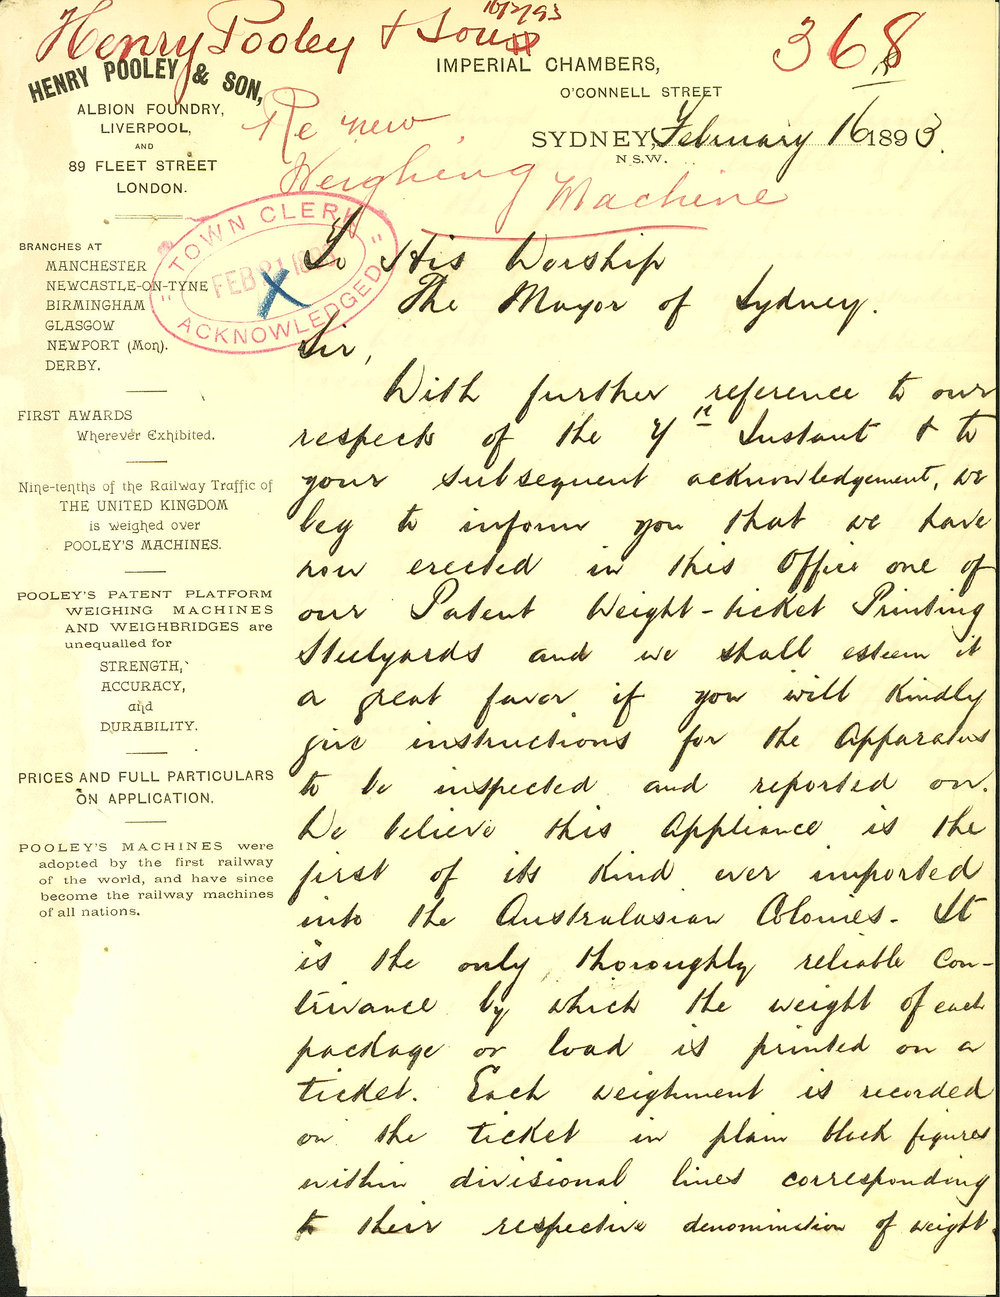 Henry Pooley & Son
16/2/93
368
HENRY POOLEY & SON,
ALBION FOUNDRY,
LIVERPOOL,
AND
89 FLEET STREET
LONDON.
IMPERIAL CHAMBERS,
O'CONNELL STREET
SYDNEY, February 16 1893.
N.S.W.
Re new
Weighing Machine
TOWN CLERK
FEB 21 1893
ACKNOWLEDGED
BRANCHES AT
MANCHESTER
NEWCASTLE-ON-TYNE
BIRMINGHAM
GLASGOW
NEWPORT (Mon).
DERBY.
FIRST AWARDS
Wherever Exhibited.
Nine-tenths of the Railway Traffic of
THE UNITED KINGDOM
is weighed over
POOLEY'S MACHINES.
POOLEY'S PATENT PLATFORM
WEIGHING MACHINES
AND WEIGHBRIDGES are
unequalled for
STRENGTH,
ACCURACY,
and
DURABILITY.
PRICES AND FULL PARTICULARS
ON APPLICATION.
POOLEY'S MACHINES were
adopted by the first railway
of the world, and have since
become the railway machines
of all nations.
To His Worship
The Mayor of Sydney.
Sir,
With further reference to our
respects of the Instant & to
your subsequent acknowledgement, we
beg to inform you that we have
now erected in this Office one of
our Patent Weight-ticket Printing
Steelyards and we shall esteem it
a great favor if you will kindly
give instructions for the Apparatus
to be inspected and reported on.
We believe this Appliance is the
first of its kind ever imported
into the Australasian Colonies - It
is the only thoroughly reliable Con-
trivance by which the weight of each
package or load is printed on a
ticket. Each weighment is recorded
on the ticket in plain black figures
within divisional lines corresponding
to their respective denomination of weight